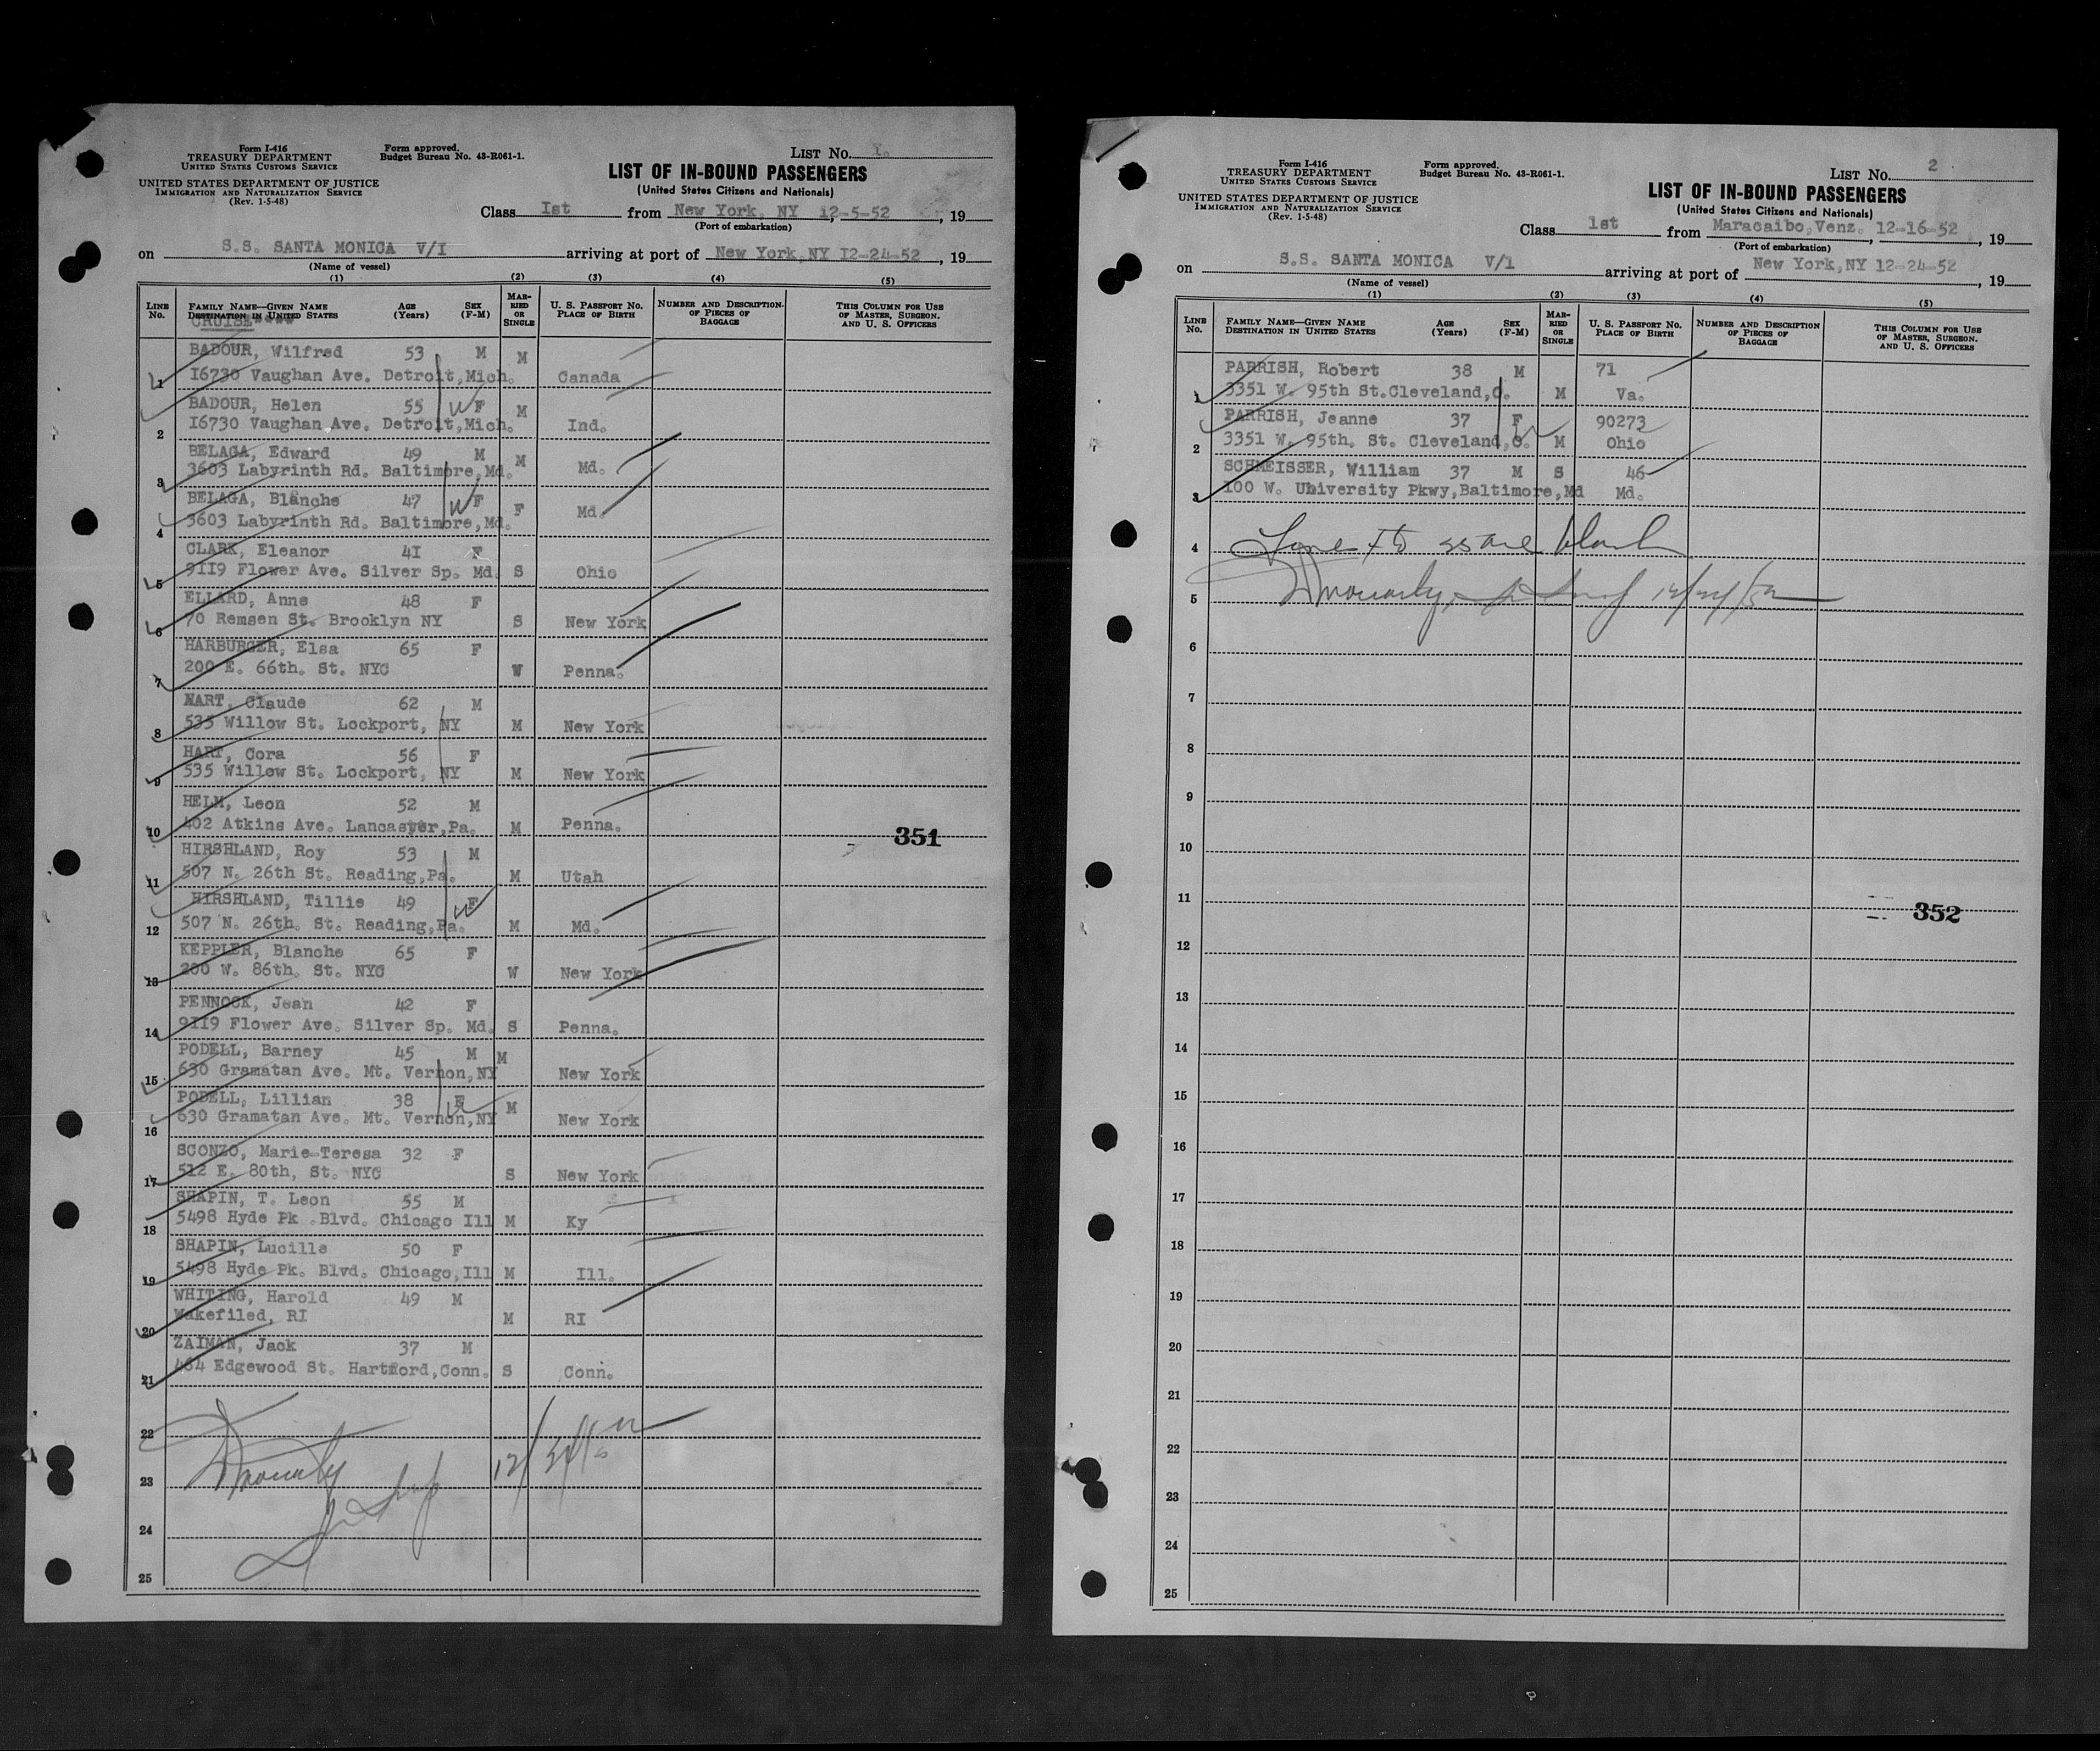 Form I-416
TREASURY DEPARTMENT
UNITED STATES CUSTOMS SERVICE
UNITED STATES DEPARTMENT OF JUSTICE
IMMIGRATION AND NATURALIZATION SERVICE
(Rev. 1-5-48)
Form approved.
Budget Bureau No. 43-R061-1.
LIST No. I.
LIST OF IN-BOUND PASSENGERS
(United States Citizens and Nationals)
Class Ist from New York, NY 12-5-52, 19
(Port of embarkation)
on S.S. SANTA MONICA V/I arriving at port of New York,NY I2-24-52, 19
(Name of vessel)
(1) (2) (3) (4) (5)
LINE No. FAMILY NAME—GIVEN NAME DESTINATION IN UNITED STATES AGE (Years) SEX (F-M) MARRIED OR SINGLE U. S. PASSPORT NO. PLACE OF BIRTH NUMBER AND DESCRIPTION OF PIECES OF BAGGAGE THIS COLUMN FOR USE OF MASTER, SURGEON, AND U. S. OFFICERS
CRUISE****
BADOUR, Wilfred 53 M M
1 I6730 Vaughan Ave. Detroit,Mich. Canada
BADOUR, Helen 55 F M
2 I6730 Vaughan Ave. Detroit,Mich. Ind.
BELAGA, Edward 49 M M
3 3603 Labyrinth Rd. Baltimore,Md. Md.
BELAGA, Blanche 47 F F
4 3603 Labyrinth Rd. Baltimore,Md. Md.
CLARK, Eleanor 4I F
5 9II9 Flower Ave. Silver Sp. Md. S Ohio
ELLARD, Anne 48 F
6 70 Remsen St. Brooklyn NY S New York
HARBURGER, Elsa 65 F
7 200 E. 66th. St. NYC W Penna.
HART, Claude 62 M
8 535 Willow St. Lockport, NY M New York
HART, Cora 56 F
9 535 Willow St. Lockport, NY M New York
HELM, Leon 52 M
10 402 Atkins Ave. Lancaster,Pa. M Penna.
351
HIRSHLAND, Roy 53 M
11 507 N. 26th St. Reading,Pa. M Utah
HIRSHLAND, Tillie 49 F
12 507 N. 26th. St. Reading,Pa. M Md.
KEPPLER, Blanche 65 F
13 200 W. 86th. St. NYC W New York
PENNOCK, Jean 42 F
14 9II9 Flower Ave. Silver Sp. Md. S Penna.
PODELL, Barney 45 M M
15 630 Gramatan Ave. Mt. Vernon,NY New York
PODELL, Lillian 38 F M
16 630 Gramatan Ave. Mt. Vernon,NY New York
SCONZO, Marie-Teresa 32 F
17 512 E. 80th, St. NYC S New York
SHAPIN, T. Leon 55 M
18 5498 Hyde Pk .Blvd. Chicago Ill M Ky
SHAPIN, Lucille 50 F
19 5498 Hyde Pk. Blvd. Chicago,Ill M Ill.
WHITING, Harold 49 M
20 Wakefiled, RI M RI
ZAIMAN, Jack 37 M
21 464 Edgewood St. Hartford,Conn. S Conn.
22
23
24
25
Form I-416
TREASURY DEPARTMENT
UNITED STATES CUSTOMS SERVICE
UNITED STATES DEPARTMENT OF JUSTICE
IMMIGRATION AND NATURALIZATION SERVICE
(Rev. 1-5-48)
Form approved.
Budget Bureau No. 43-R061-1.
LIST No. 2
LIST OF IN-BOUND PASSENGERS
(United States Citizens and Nationals)
Class 1st from Maracaibo,Venz. 12-16-52, 19
(Port of embarkation)
on S.S. SANTA MONICA V/1 arriving at port of New York,NY 12-24-52, 19
(Name of vessel)
(1) (2) (3) (4) (5)
LINE No. FAMILY NAME—GIVEN NAME DESTINATION IN UNITED STATES AGE (Years) SEX (F-M) MARRIED OR SINGLE U. S. PASSPORT NO. PLACE OF BIRTH NUMBER AND DESCRIPTION OF PIECES OF BAGGAGE THIS COLUMN FOR USE OF MASTER, SURGEON, AND U. S. OFFICERS
PARRISH, Robert 38 M 71
1 3351 W. 95th St.Cleveland,O. M Va.
PARRISH, Jeanne 37 F 90273
2 3351 W. 95th. St. Cleveland,O. M Ohio
SCHMEISSER, William 37 M S 46
3 100 W. University Pkwy,Baltimore,Md Md.
4 are blank
5
6
7
8
9
10
11
352
12
13
14
15
16
17
18
19
20
21
22
23
24
25